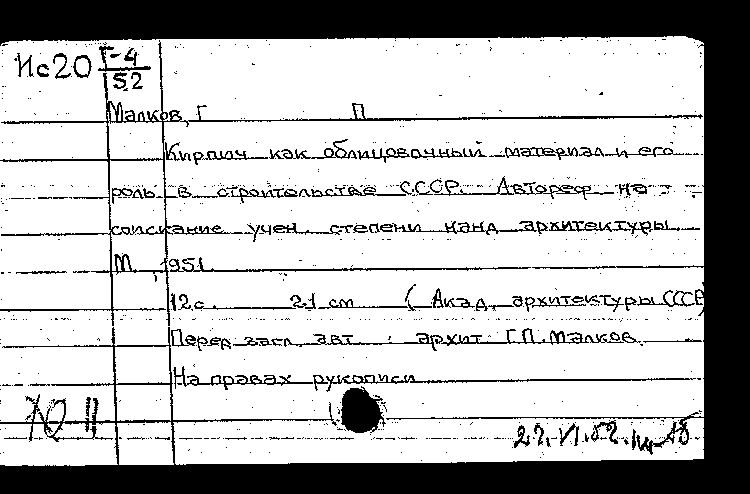 Ис20 Г-4
52
Малков, Г П
Кирпич как облицовочный материал и его
роль в строительстве СССР. Автореф на
соискание учен. степени канд архитектуры.
М., 1951.
12с. 21 см (Акад. архитектуры СССР)
Перед загл. авт : архит. Г.П. Малков.
На правах рукописи
22.VI.52.